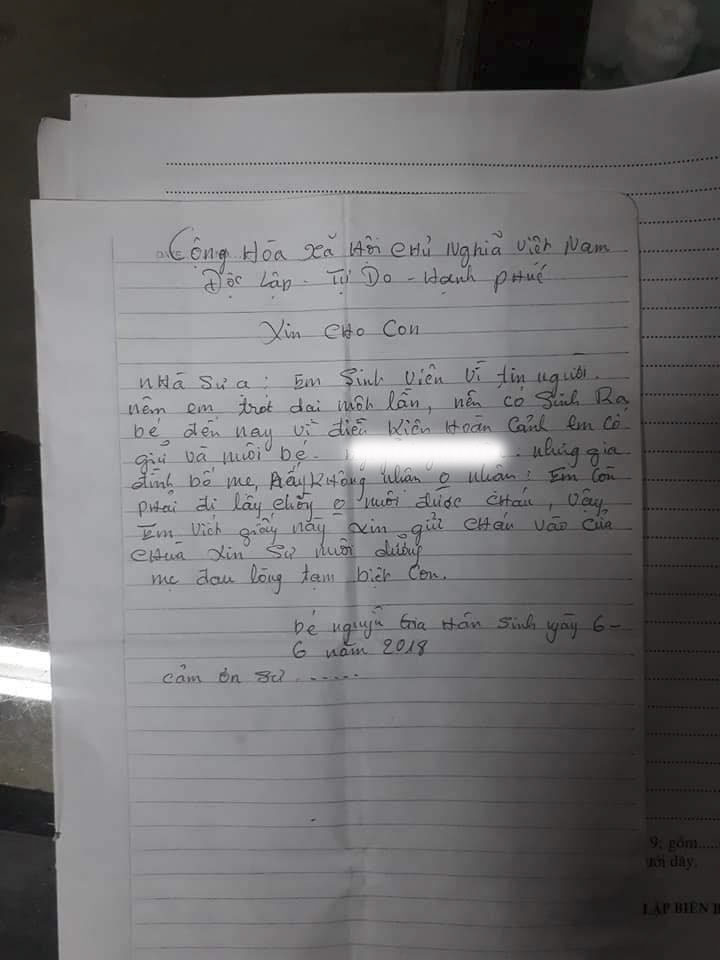 Cộng Hòa Xã Hội Chủ Nghĩa Việt Nam
Độc Lập - Tự Do - Hạnh Phúc
Xin Cho Con
Nhà Sư ạ: Em Sinh Viên vì tin người.
nêm em trót dai một lần, nên có Sinh Ra
bé đến nay vì điều Kiên Hoàn Cảnh em cố
giữ và nuôi bé. nhưng gia
đình bố mẹ, không nhân o nhân: Em Còn
phải đi lấy chồng o nuôi được cháu, vậy
Em vich giấy này xin gửi cháu vào Của
chùa Xin Sư nuôi dưỡng
mẹ đau lòng tạm biệt Con.
bé nguyễn Gia Hân Sinh ngày 6-
6 năm 2018
cảm ơn sư ......
9; gồm...
ưới đây.
LẬP BIÊN B